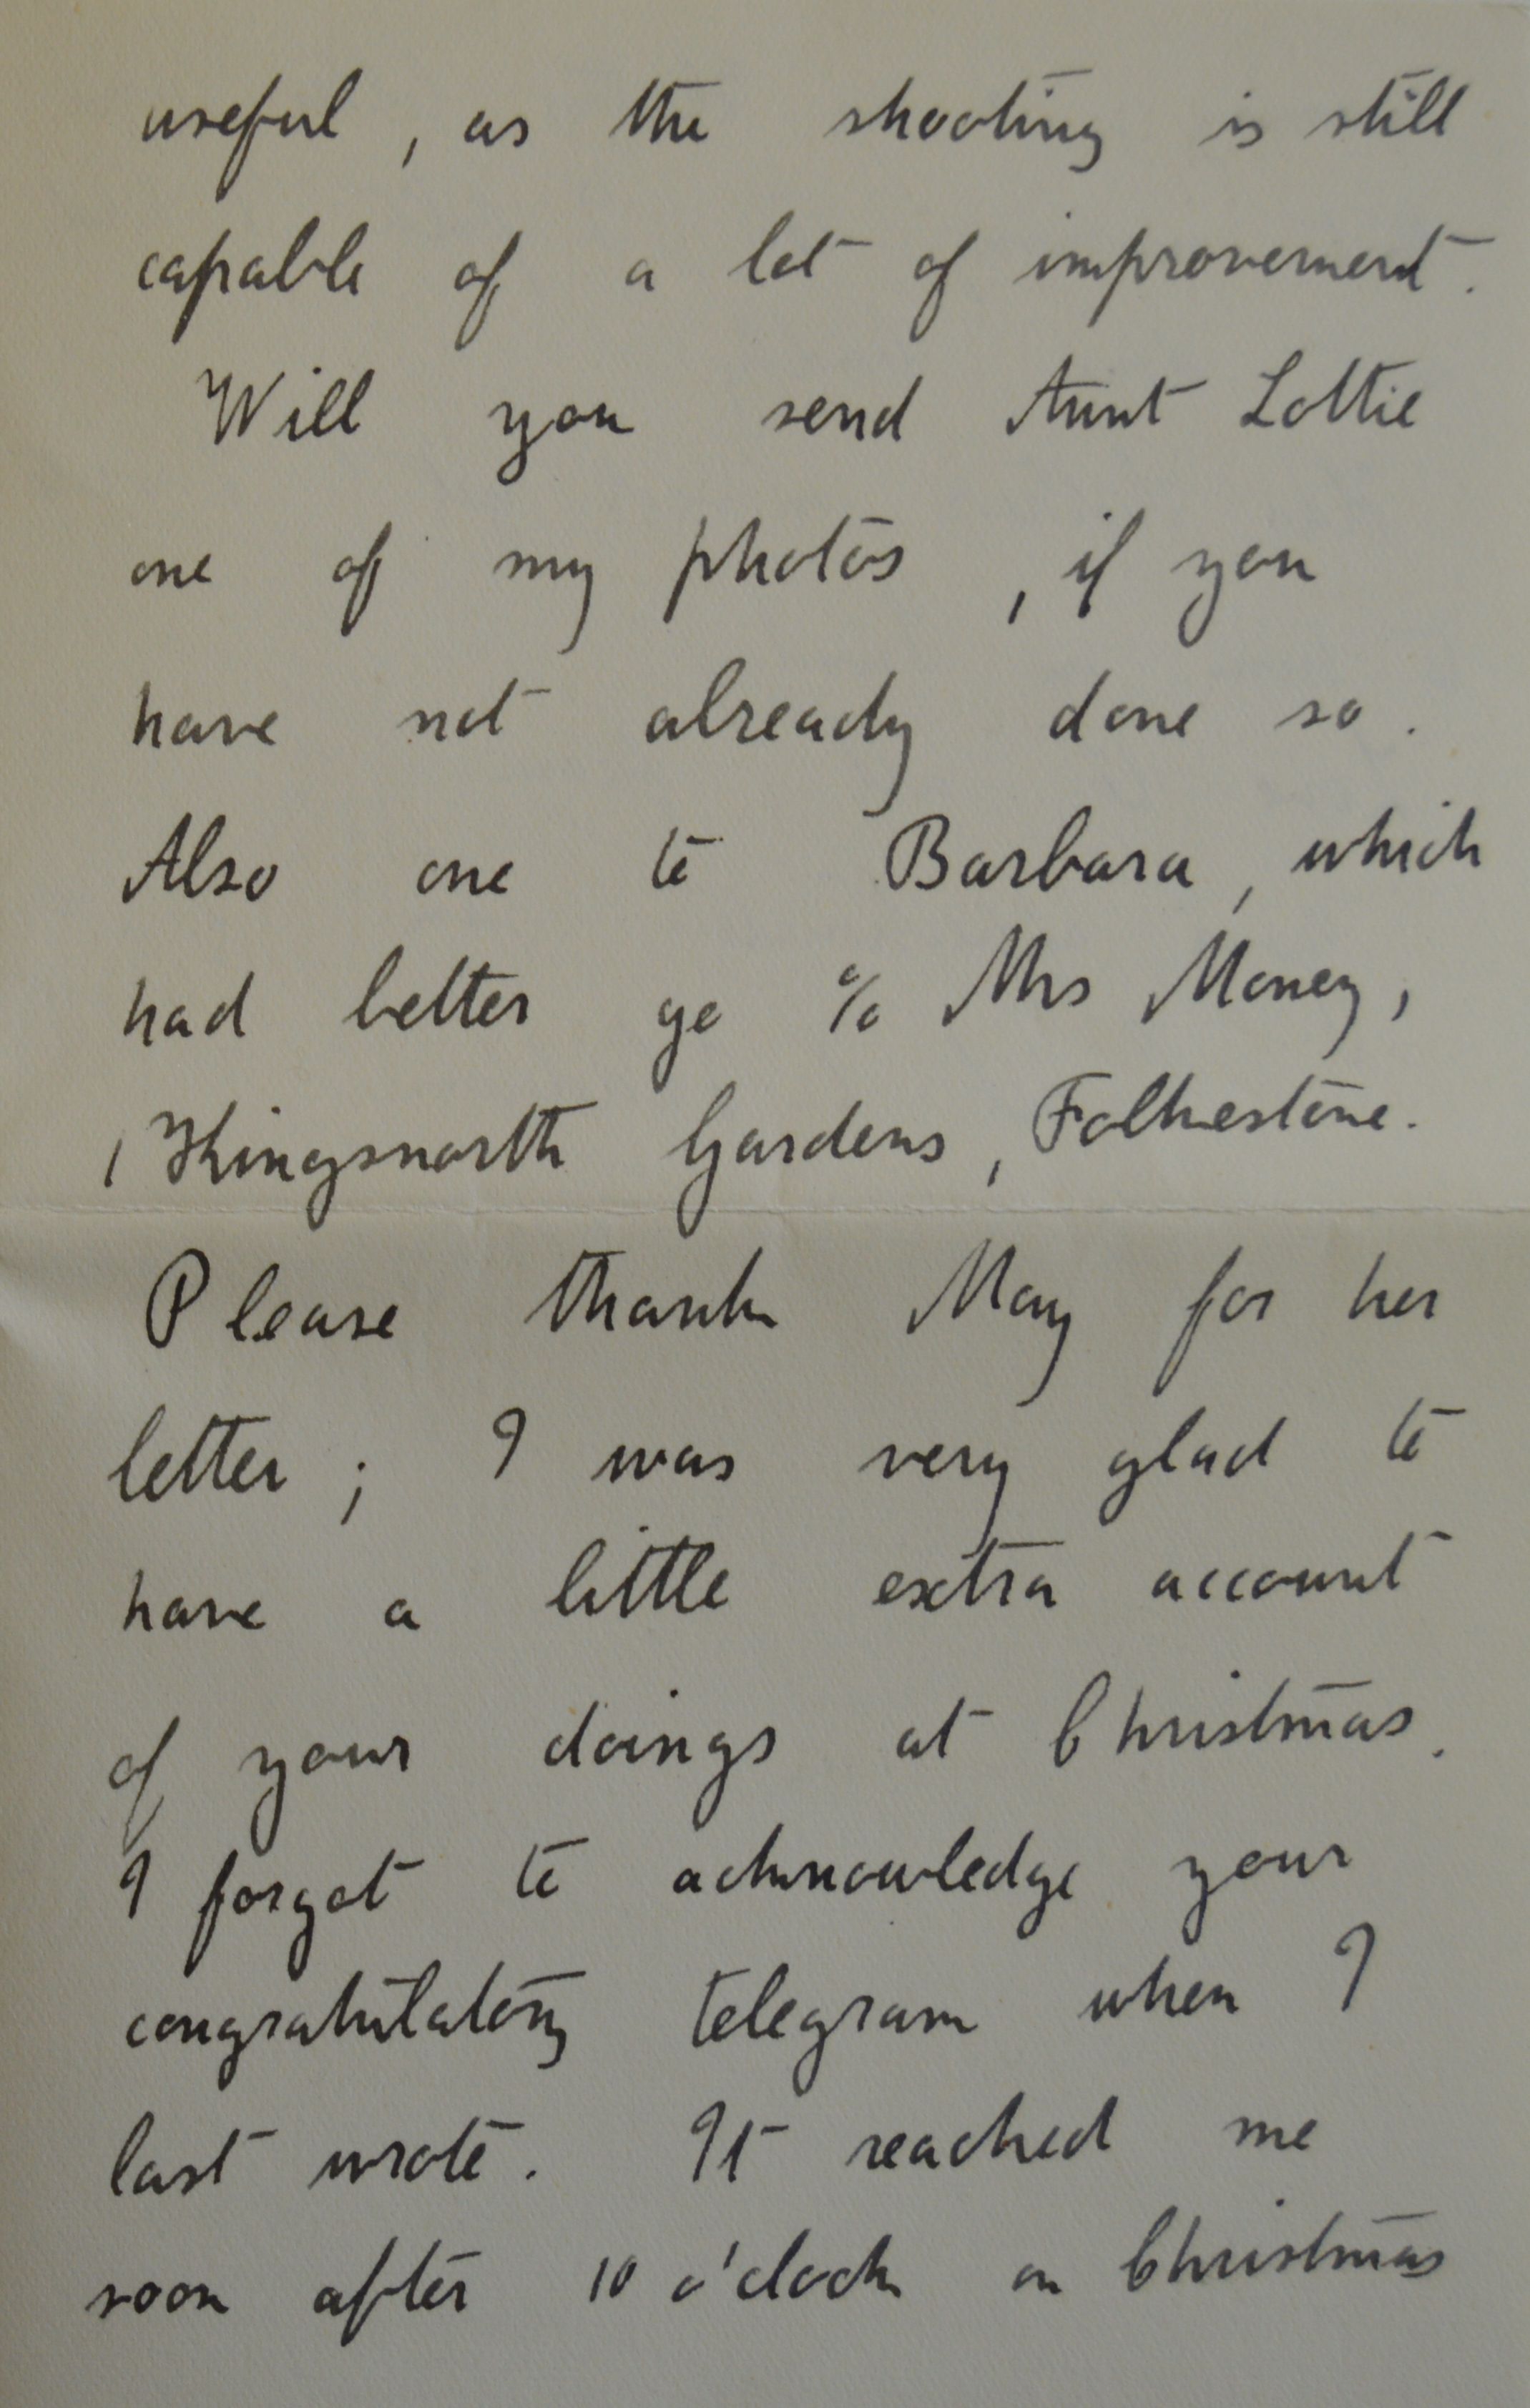 useful, as the shooting is still
capable of a lot of improvement.
Will you send Aunt Lottie
one of my photos, if you
have not already done so.
Also one to Barbara, which
had better go % Mrs Money,
1 Kingsnorth Gardens, Folkestone.
Please thank May for her
letter; I was very glad to
have a little extra account
of your doings at Christmas.
I forgot to acknowledge your
congratulatory telegram when I
last wrote. It reached me
soon after 10 o'clock on Christmas